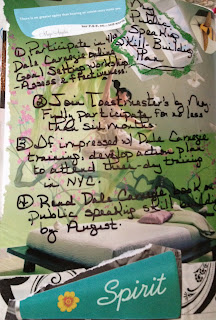 Public
Speaking
Skill Building
Plan
① Participate in
Dale Carnegie online
Goal Setting Workshop
-Access & effectiveness.
② Join Toastmaster's by May
Fully participate for no less
than six months
③ If impressed w/ Dale Carnegie
training, develop action plan
to attend three-day training
in NYC.
④ Read Dale Carnegie book on
public speaking skill
by August.
Spirit